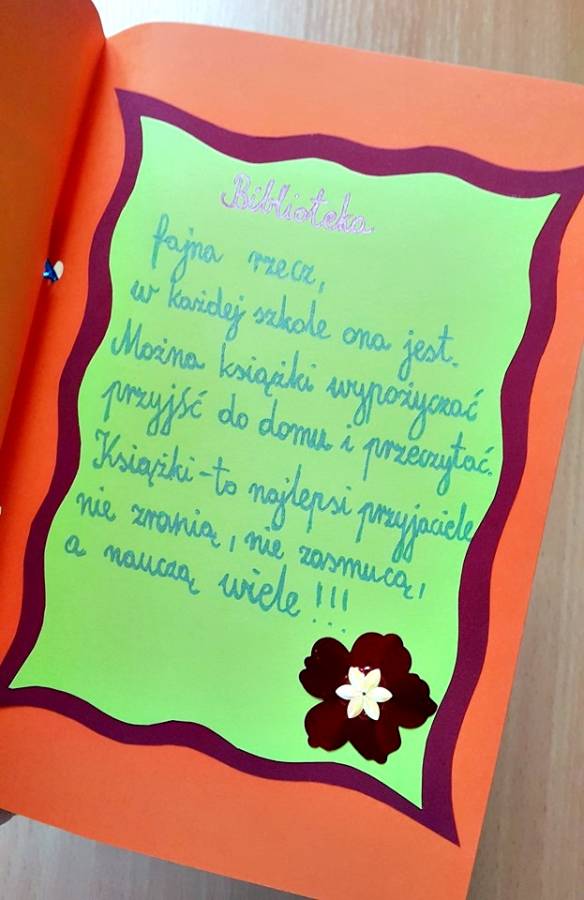 Biblioteka
fajna rzecz,
w każdej szkole ona jest.
Można książki wypożyczać
przyjść do domu i przeczytać.
Książki - to najlepsi przyjaciele
nie zranią, nie zasmucą,
a nauczą wiele!!!